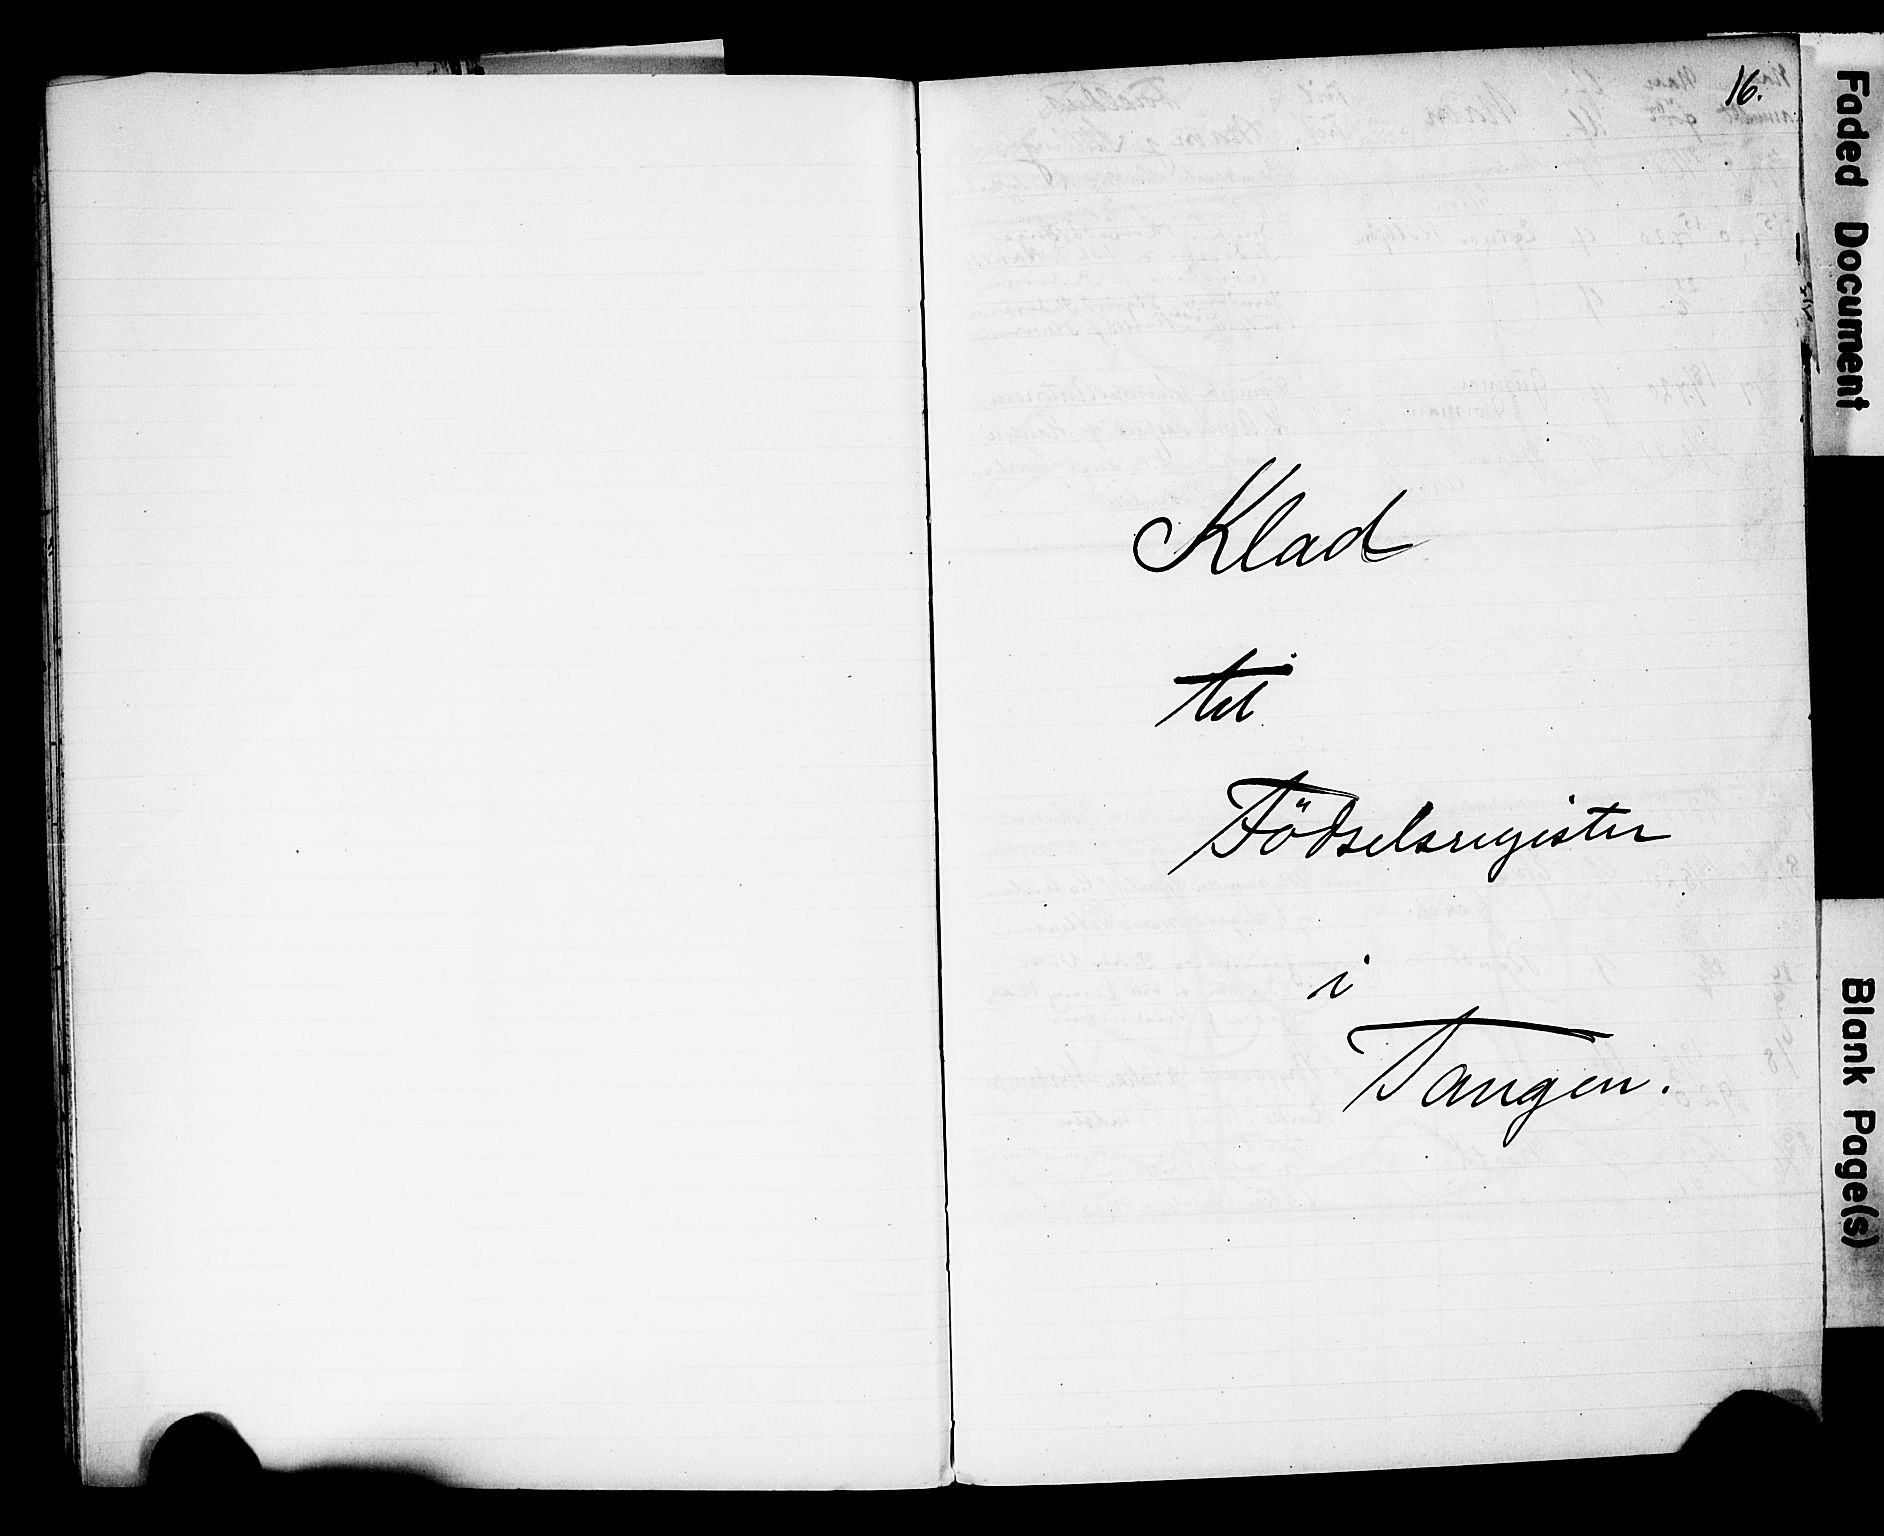 16.
Klad
til
Födselsregister
i
Tangen.
Faded Document
Blank Page(s)